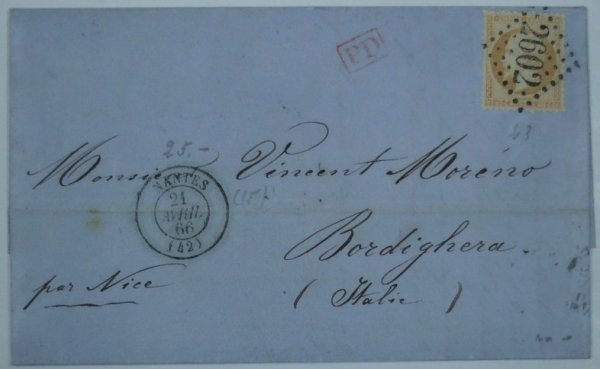 PD
2602
63
25.-
Monsieur Vincent Moréno
NANTES
21
AVRIL
66
(42)
(15)
Bordighera.
par Nice
(Italie)